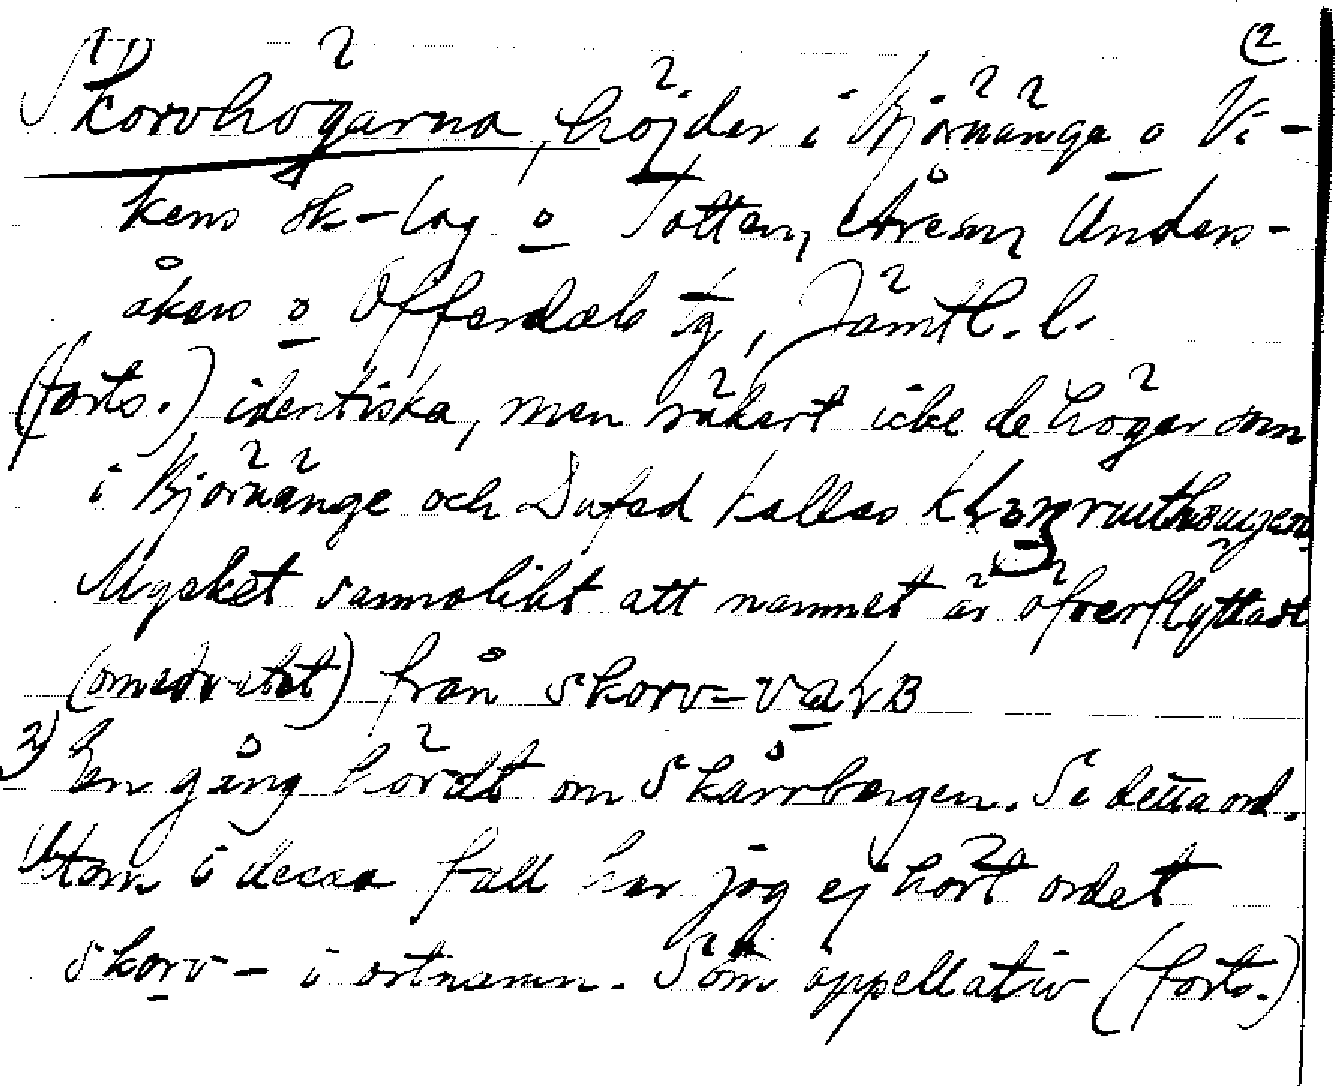 (2
Skorvhögarna, höjder i Björnänge o Vi-
kens sk-lag o Totten, Åresn, Unders-
åkers o Offerdals tg, Jämtl. l.
(forts.) identiska, men säkert icke de högar som
i Björnänge och Dufed kallas
Mycket sannolikt att namnet är öfverflyttadt
(omedvetet) från skorv=
2) En gång hördt om Skårrbergen. Se detta ord.
Utom i dessa fall har jag ej hört ordet
skorv- i ortnamn. Som appellativ (forts.)